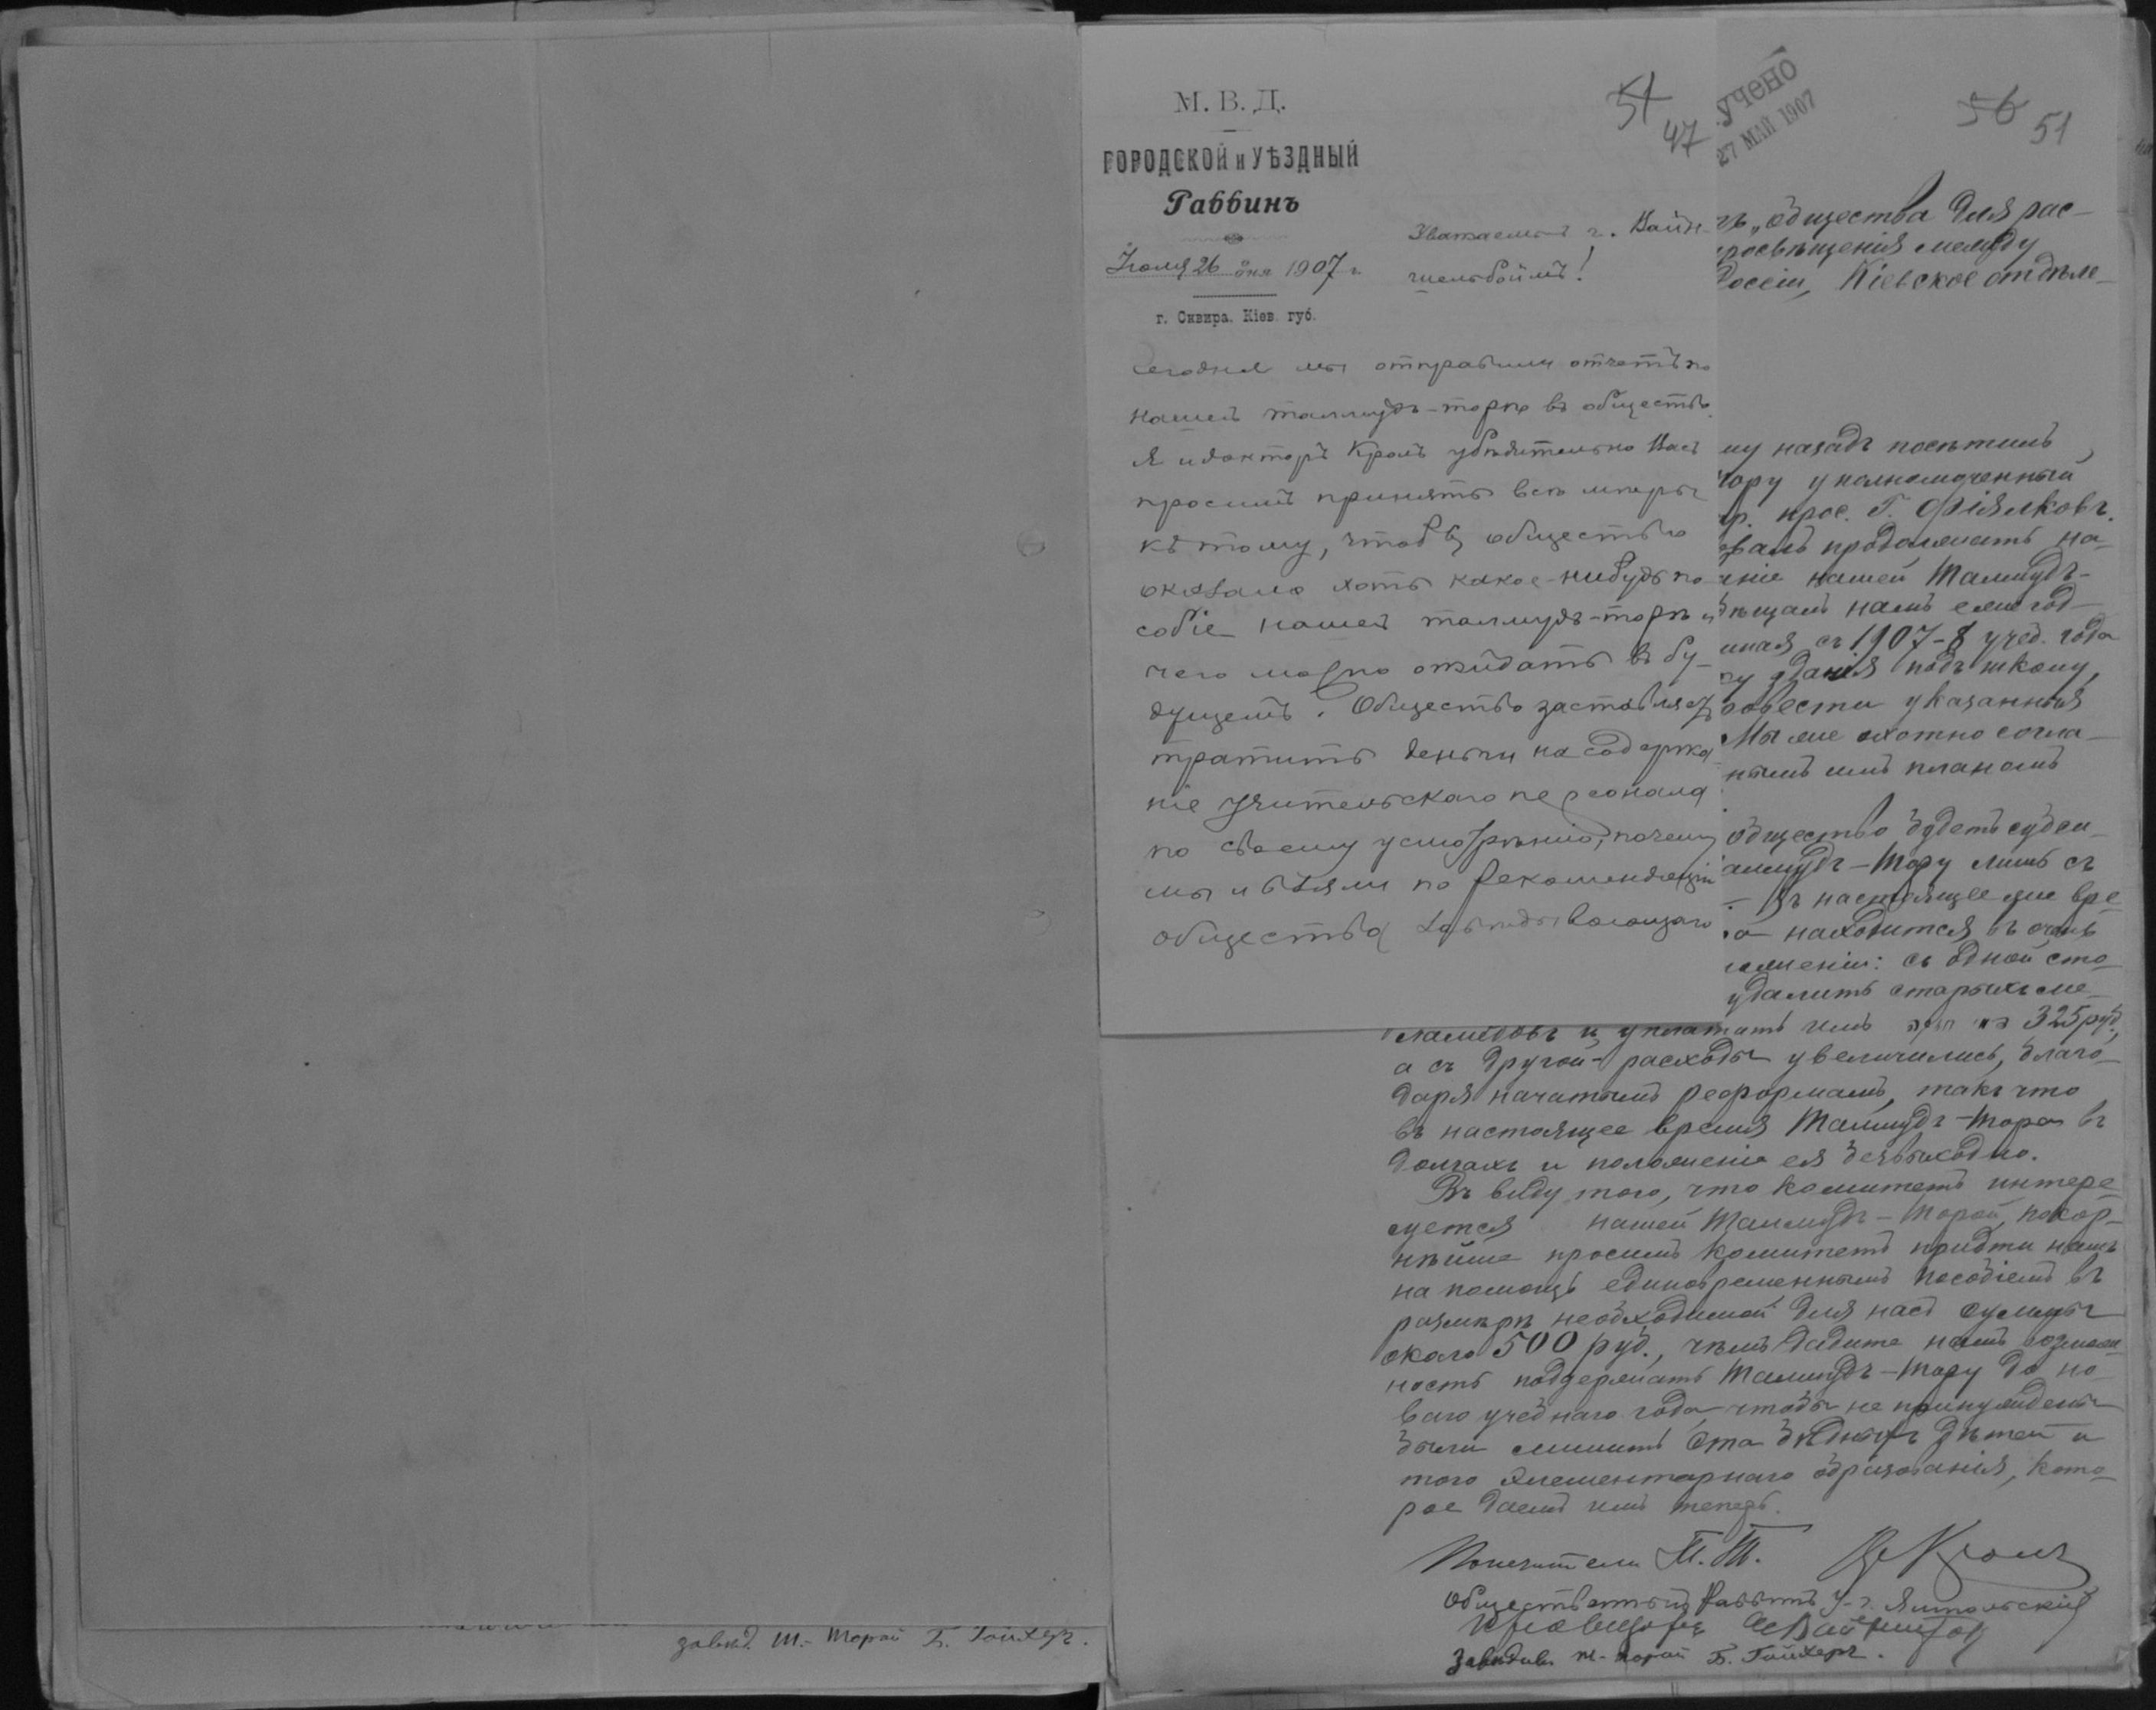 завѣд. Т.- Торой Б. Гойхеръ.
М. В. Д.
ГОРОДСКОЙ и УѢЗДНЫЙ
Раввинъ
26 дня 1907 г.
г. Сквира. Кіев. губ.
51
47
Уважаемый г. Вайн-
штейнъ!
Сегодня мы отправили отчетъ по
нашей талмудъ-торѣ въ общество.
Я и докторъ Кроль убѣдительно Васъ
просимъ принять всѣ мѣры
къ тому, чтобъ общество
оказало хоть какое-нибудь по-
собіе нашей талмудъ-торѣ и
чего можно ожидать въ бу-
дущемъ. Общество заставляетъ
тратить деньги на содержа-
ніе учительскаго персонала
по своему усмотрѣнію, почему
мы и взяли по рекомендаціи
общества завѣдывающаго
учено
27 МАЙ 1907
56
51
„общества для рас-
просвѣщенія между
Россіи, Кіевское отдѣле-
му назадъ посѣтилъ,
тору уполномоченный
пр. прос. Г. Фіялковъ.
валъ продолжать на-
ніе нашей Талмудъ-
ѣщалъ намъ ежегод-
иная съ 1907-8 учеб. года
зданія подъ школу,
ровести указанныя
Мы же охотно согла-
нымъ имъ планомъ
общество будетъ субси-
алмудъ-Тору лишь съ
Въ настоящее же вре-
а находится въ очень
ложеніи: съ одной сто-
удалить старыхъ ме-
ламедовъ и уплатить имъ 325 руб.,
а съ другой - расходы увеличились, благо-
даря начатымъ реформамъ, такъ что
въ настоящее время Талмудъ-Тора въ
долгахъ и положеніе ея безвыходно.
Въ виду того, что комитетъ интере-
суется нашей Талмудъ-Торой, покор-
нѣйше просимъ комитетъ придти намъ
на помощь единовременнымъ пособіемъ въ
размѣрѣ необходимой для насъ суммы
около 500 руб., чѣмъ дадите намъ возмож-
ность поддержать Талмудъ-Тору до но-
ваго учебнаго года, чтобы не принуждены
были лишить ста бѣдныхъ дѣтей и
того элементарнаго образованія, кото-
рое даемъ имъ теперь.
Попечители Т.Т. Кроль
Общественный Раввинъ
Завѣдыв. Т-Торой Б. Гойхеръ.